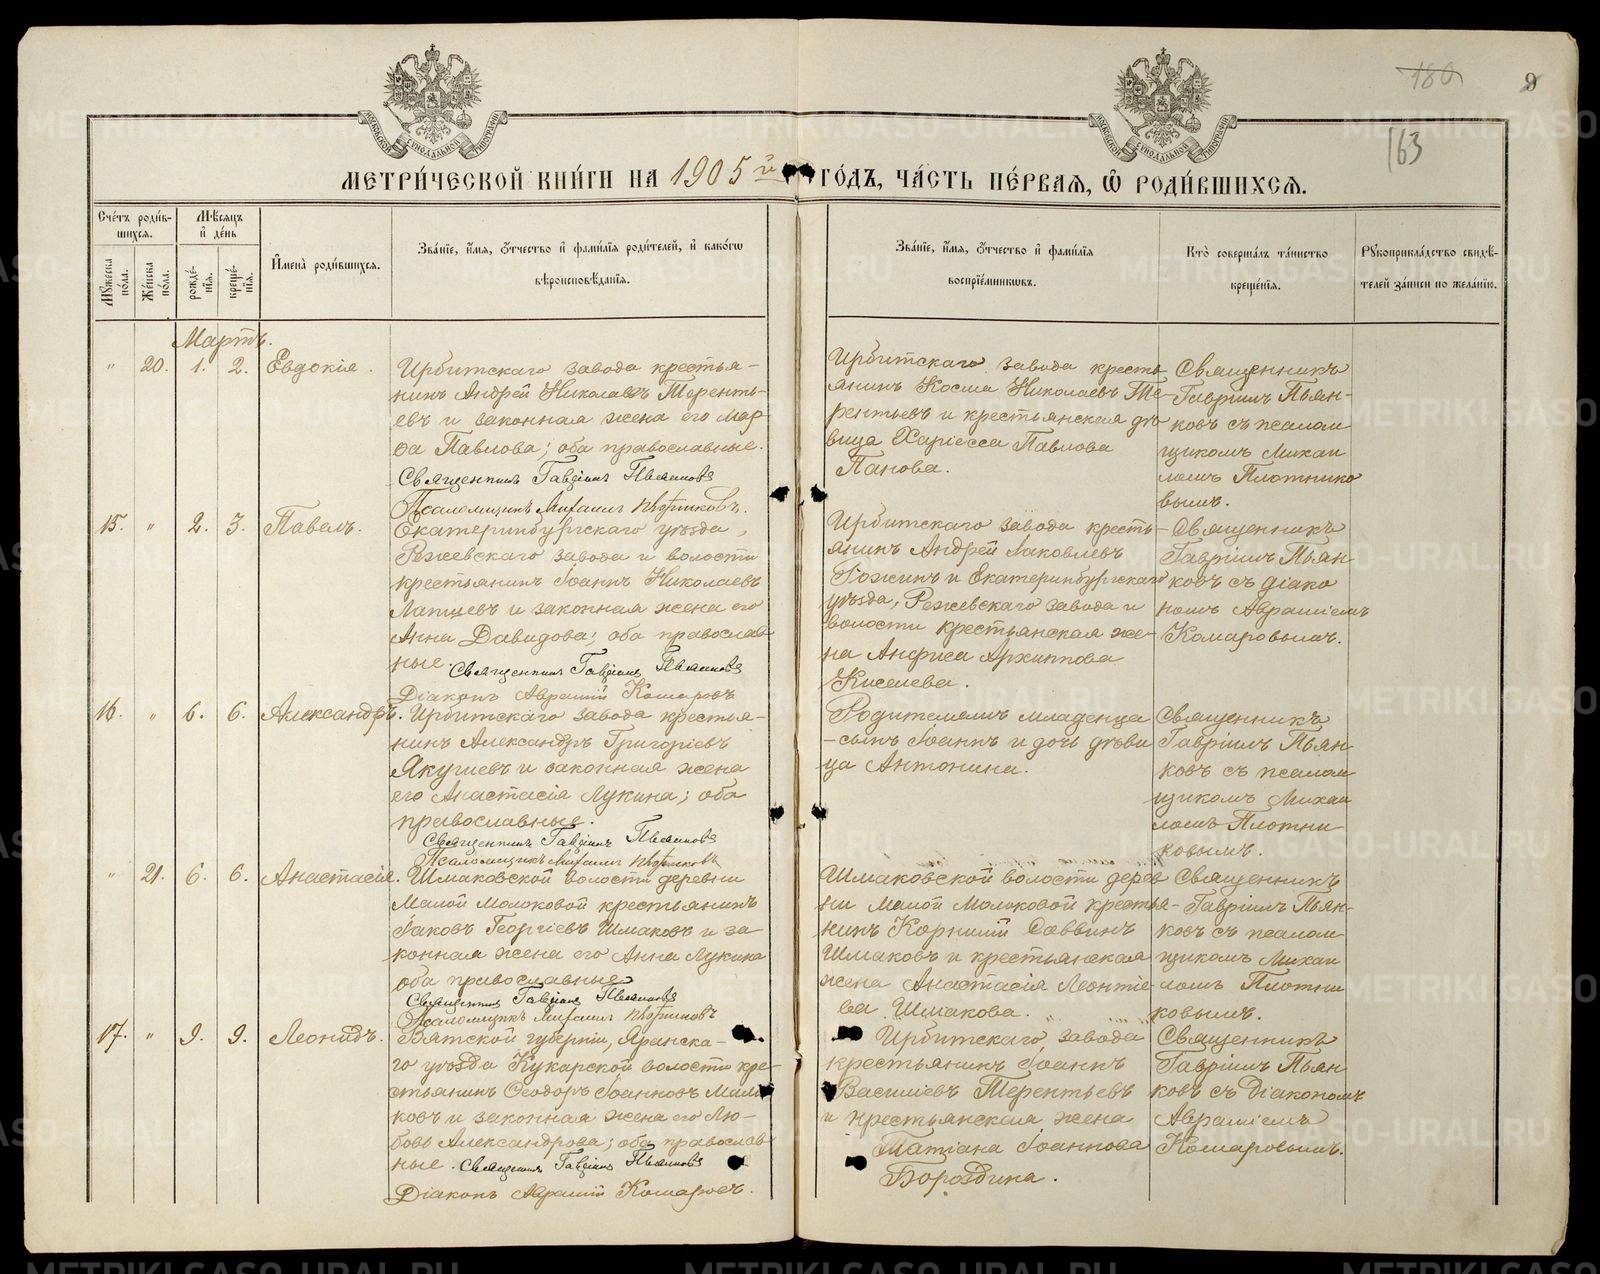 180
9
163
МОСКОВСКОЙ СѴНОДАЛЬНОЙ ТИПОГРАФІИ
МОСКОВСКОЙ СѴНОДАЛЬНОЙ ТИПОГРАФІИ
МЕТРИ́ЧЕСКОЙ КНИ́ГИ НА 1905й ГО́ДЪ, ЧА́СТЬ ПЕ́РВАЯ, Ѡ҆ РОДИ́ВШИХСЯ.
Сче́тъ роди́в-
шихся.
Мꙋжеска по́ла.
Же́нска по́ла.
Мѣ́сяцъ
и҆ де́нь
рожде́-
нїя.
креще́-
нїя.
И҆мена̀ роди́вшихся.
Зва́нїе, и҆́мя, ѻ҆́тчество и҆ фами́лїя роди́телей, и҆ како́гѡ
вѣроисповѣ́данїя.
Зва́нїе, и҆́мя, ѻ҆́тчество и҆ фами́лїя
воспрїе́мникѡвъ.
Кто̀ соверша́лъ та́инство
креще́нїя.
Рꙋкоприкла́дство свидѣ́-
телей за́писи по жела́нїю.
Мартъ.
" 20. 1. 2. Евдокія.
Ирбитскаго завода крестья-
нинъ Андрей Николаевъ Теренть-
евъ и законная жена его Мар-
ѳа Павлова; оба православные.
Священникъ Гавріилъ Пьянковъ
Псаломщикъ Михаилъ Плотниковъ.
Ирбитскаго завода кресть-
янинъ Косма Николаевъ Те-
рентьевъ и крестьянская дѣ-
вица Хариесса Павлова
Панова.
Священникъ
Гавріилъ Пьян-
ковъ съ псалом
щикомъ Михаи
ломъ Плотнико
вымъ.
15. " 2. 3. Павелъ.
Екатеринбургскаго уѣзда,
Режевскаго завода и волости
крестьянинъ Іоаннъ Николаевъ
Латшевъ и законная жена его
Анна Давидова; оба православ
ные. Священникъ Гавріилъ Пьянковъ
Діаконъ Аврамій Комаровъ
Ирбитскаго завода кресть-
янинъ Андрей Іаковлевъ
Рожинъ и Екатеринбургскаго
уѣзда, Режевскаго завода и
волости крестьянская же-
на Анфиса Архиппова
Киселева.
Священникъ
Гавріилъ Пьян
ковъ съ діако
номъ Аврамiемъ
Комаровымъ.
16. " 6. 6. Александръ.
Ирбитскаго завода крестья-
нинъ Александръ Григоріевъ
Якушевъ и законная жена
его Анастасія Лукина; оба
православные.
Священникъ Гавріилъ Пьянковъ
Псаломщикъ Михаилъ Плотниковъ
Родителемъ младенца
-сынъ Іоаннъ и дочь дѣви
ца Антонина.
Священникъ
Гавріилъ Пьян
ковъ съ псалом
щикомъ Михаи
ломъ Плотни
ковымъ.
" 21. 6. 6. Анастасія.
Шмаковской волости деревни
Малой Молоковой крестьянинъ
Іаковъ Георгіевъ Шмаковъ и за-
конная жена его Анна Лукина
оба православные
Священникъ Гавріилъ Пьянковъ
Псаломщикъ Михаилъ Плотниковъ
Шмаковской волости дерев
ни Малой Молоковой крестья-
нинъ Корнилій Саввинъ
Шмаковъ и крестьянская
жена Анастасія Леонтіе-
ва Шмакова.
Священникъ
Гавріилъ Пьян-
ковъ съ псалом
щикомъ Михаи
ломъ Плотни
ковымъ.
17. " 9. 9. Леонидъ.
Вятской губерніи, Яранска-
го уѣзда Кукарской волости кре-
стьянинъ Ѳеодоръ Іоанновъ Мила
ковъ и законная жена его Лю-
бовь Александрова; оба православ
ные. Священникъ Гавріилъ Пьянковъ
Діаконъ Аврамій Комаровъ.
Ирбитскаго завода
крестьянинъ Іоаннъ
Василіевъ Терентьевъ
и крестьянская жена
Татіана Іоаннова
Бороздина.
Священникъ
Гавріилъ Пьян
ковъ съ Діакономъ
Авраміемъ
Комаровымъ.
METRIKI.GASO-URAL.RU